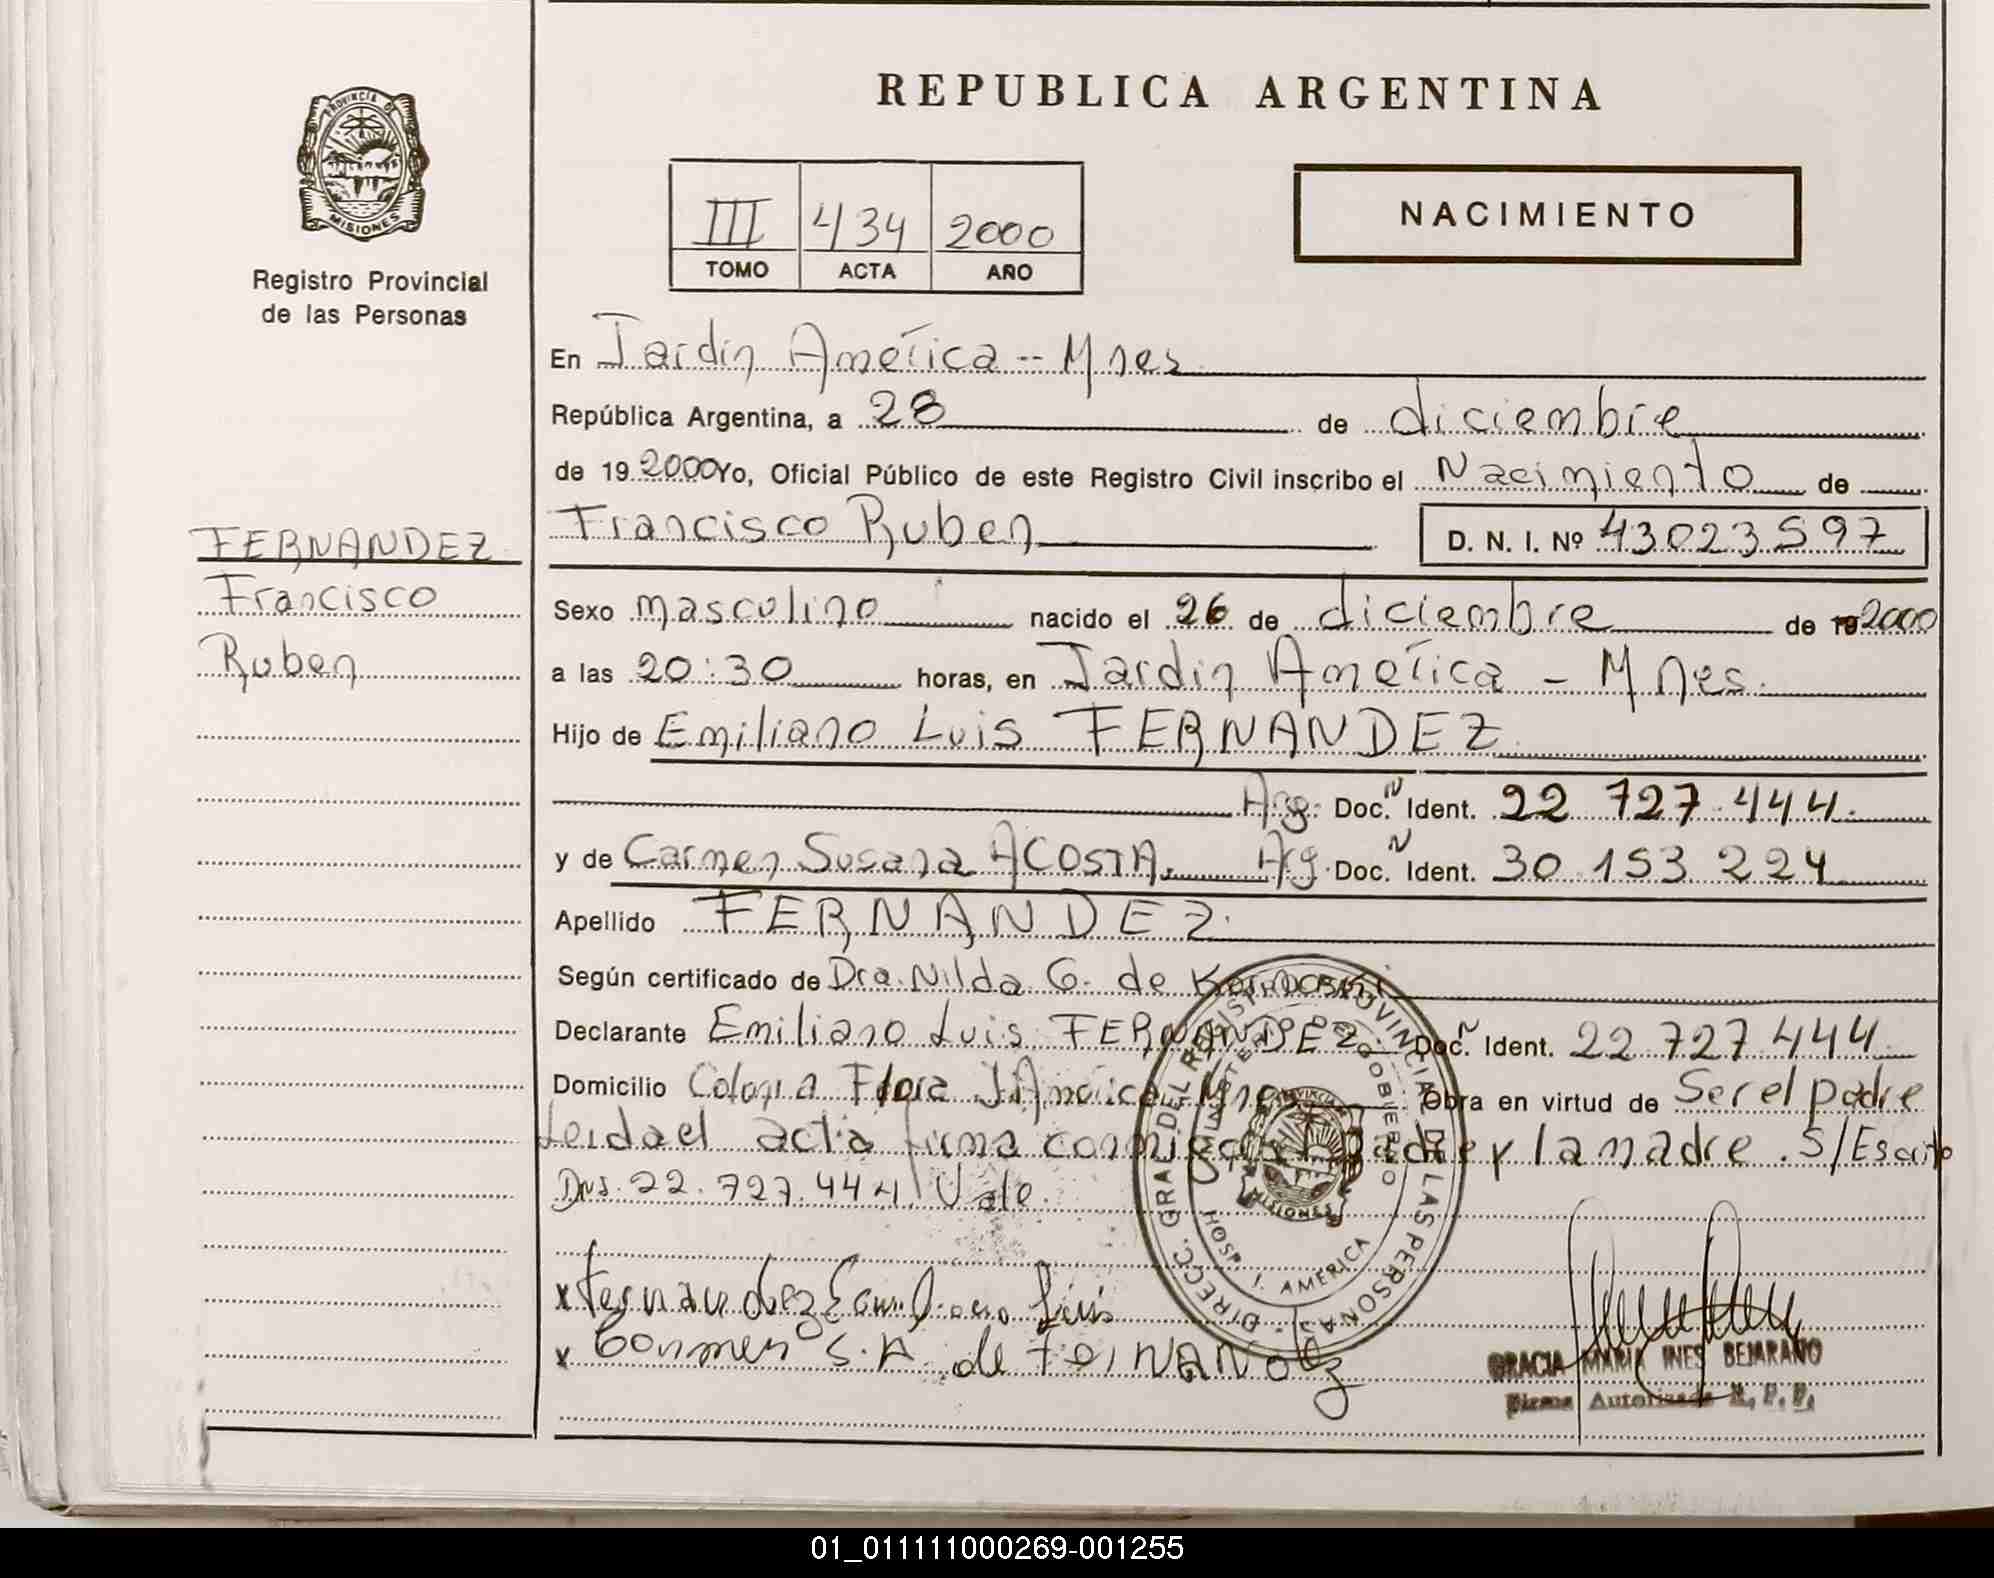 REPUBLICA ARGENTINA
PROVINCIA DE
MISIONES
Registro Provincial
de las Personas
III 434 2000
TOMO ACTA AÑO
NACIMIENTO
En Jardin América -- Mnes
República Argentina, a 28 de diciembre
de 19 2000 Yo, Oficial Público de este Registro Civil inscribo el Nacimiento de
Francisco Ruben D. N. I. Nº 43023597
FERNANDEZ
Francisco
Ruben
Sexo masculino nacido el 26 de diciembre de 19 2000
a las 20:30 horas, en Jardin América - Mnes.
Hijo de Emiliano Luis FERNANDEZ
Arg. Doc. N Ident. 22 727 444.
y de Carmen Susana ACOSTA. Arg. Doc. N Ident. 30 153 224
Apellido FERNANDEZ.
Según certificado de Dra. Nilda G. de
Declarante Emiliano Luis FERNANDEZ. Doc. N Ident. 22 727 444
Domicilio Colonia Flora J América Mnes Obra en virtud de Ser el padre
Leida el acta firma conmigo el padre y la madre . S/Escrito
Dni. 22.727.444 Vale.
DIRECC. GRAL. DEL REGISTRO PROVINCIAL DE LAS PERSONAS
MINISTERIO DE GOBIERNO
PROVINCIA
MISIONES
HOSP. J. AMERICA
x Fernandez Emiliano Luis
x Carmen S. A. de FerNANDez
GRACIA MARIA INES BEJARANO
Firma Autorizada R. P. P.
01_011111000269-001255